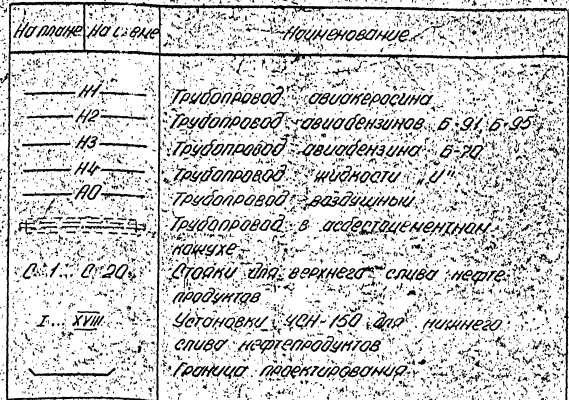 На плане На схеме Наименование
Н1 Трубопровод авиакеросина
Н2 Трубопровод авиабензинов Б-91, Б-95
Н3 Трубопровод авиабензина Б-70
Н4 Трубопровод жидкости „И"
А0 Трубопровод воздушный
Трубопровод в асбестоцементном
кожухе
С 1... С 20 Стояки для верхнего слива нефте-
продуктов
I... XVIII Установки УСН-150 для нижнего
слива нефтепродуктов
Граница проектирования